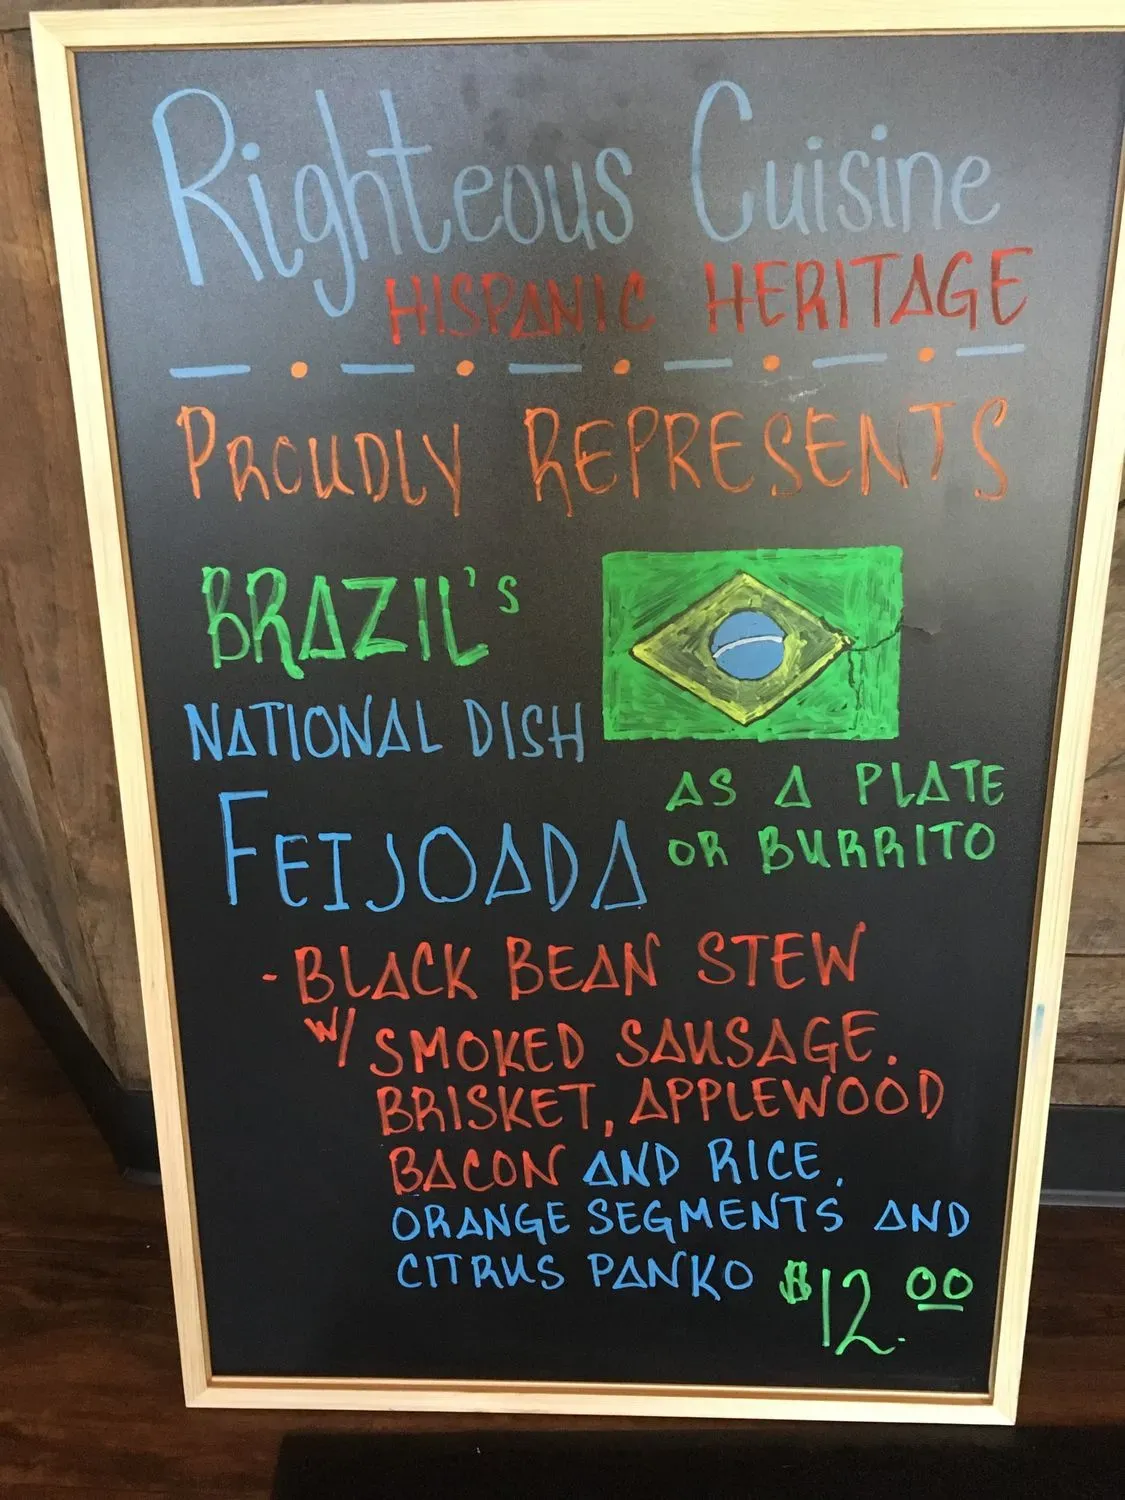 Righteous Cuisine
HISPANIC HERITAGE
PROUDLY REPRESENTS
BRAZIL's
NATIONAL DISH
FEIJOADA
AS A PLATE
OR BURRITO
- BLACK BEAN STEW
W/ SMOKED SAUSAGE.
BRISKET, APPLEWOOD
BACON AND RICE,
ORANGE SEGMENTS AND
CITRUS PANKO $12.00